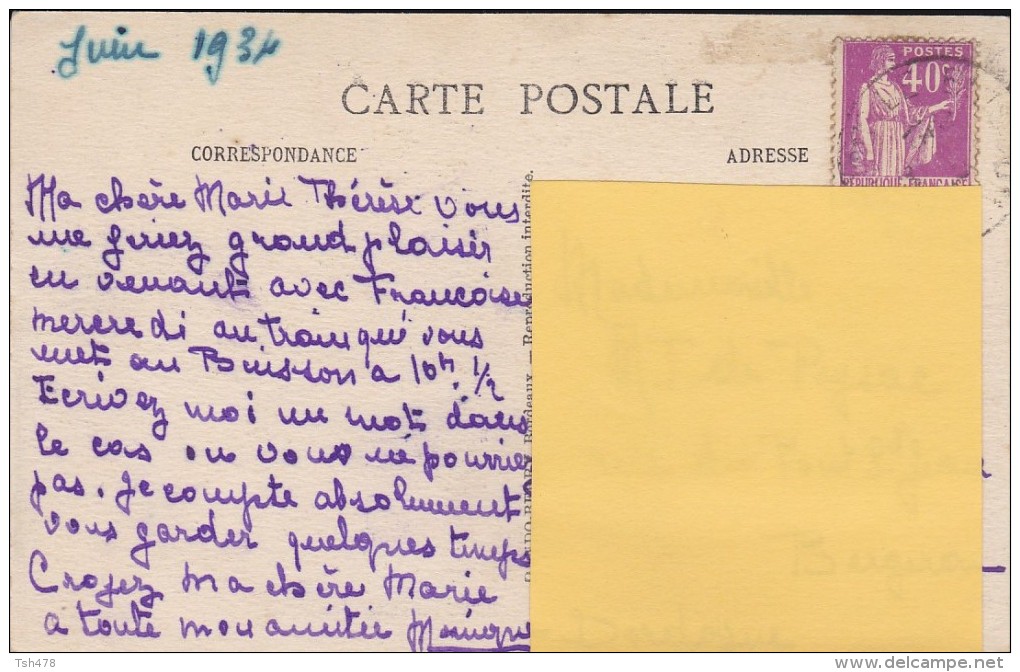 Juin 1934
CARTE POSTALE
CORRESPONDANCE
ADRESSE
POSTES
40c
RÉPUBLIQUE FRANÇAISE
Ma chère Marie Thérèse vous
me feriez grand plaisir
en venant avec Françoise
mercredi au train qui vous
met au Buisson à 10h. 1/2
Ecrivez moi un mot dans
le cas ou vous ne pourriez
pas. Je compte absolument
vous garder quelques temps
Croyez ma chère Marie
a toute mon amitié Monique
Bordeaux. — Reproduction interdite.
Tsh478
delcampe.net